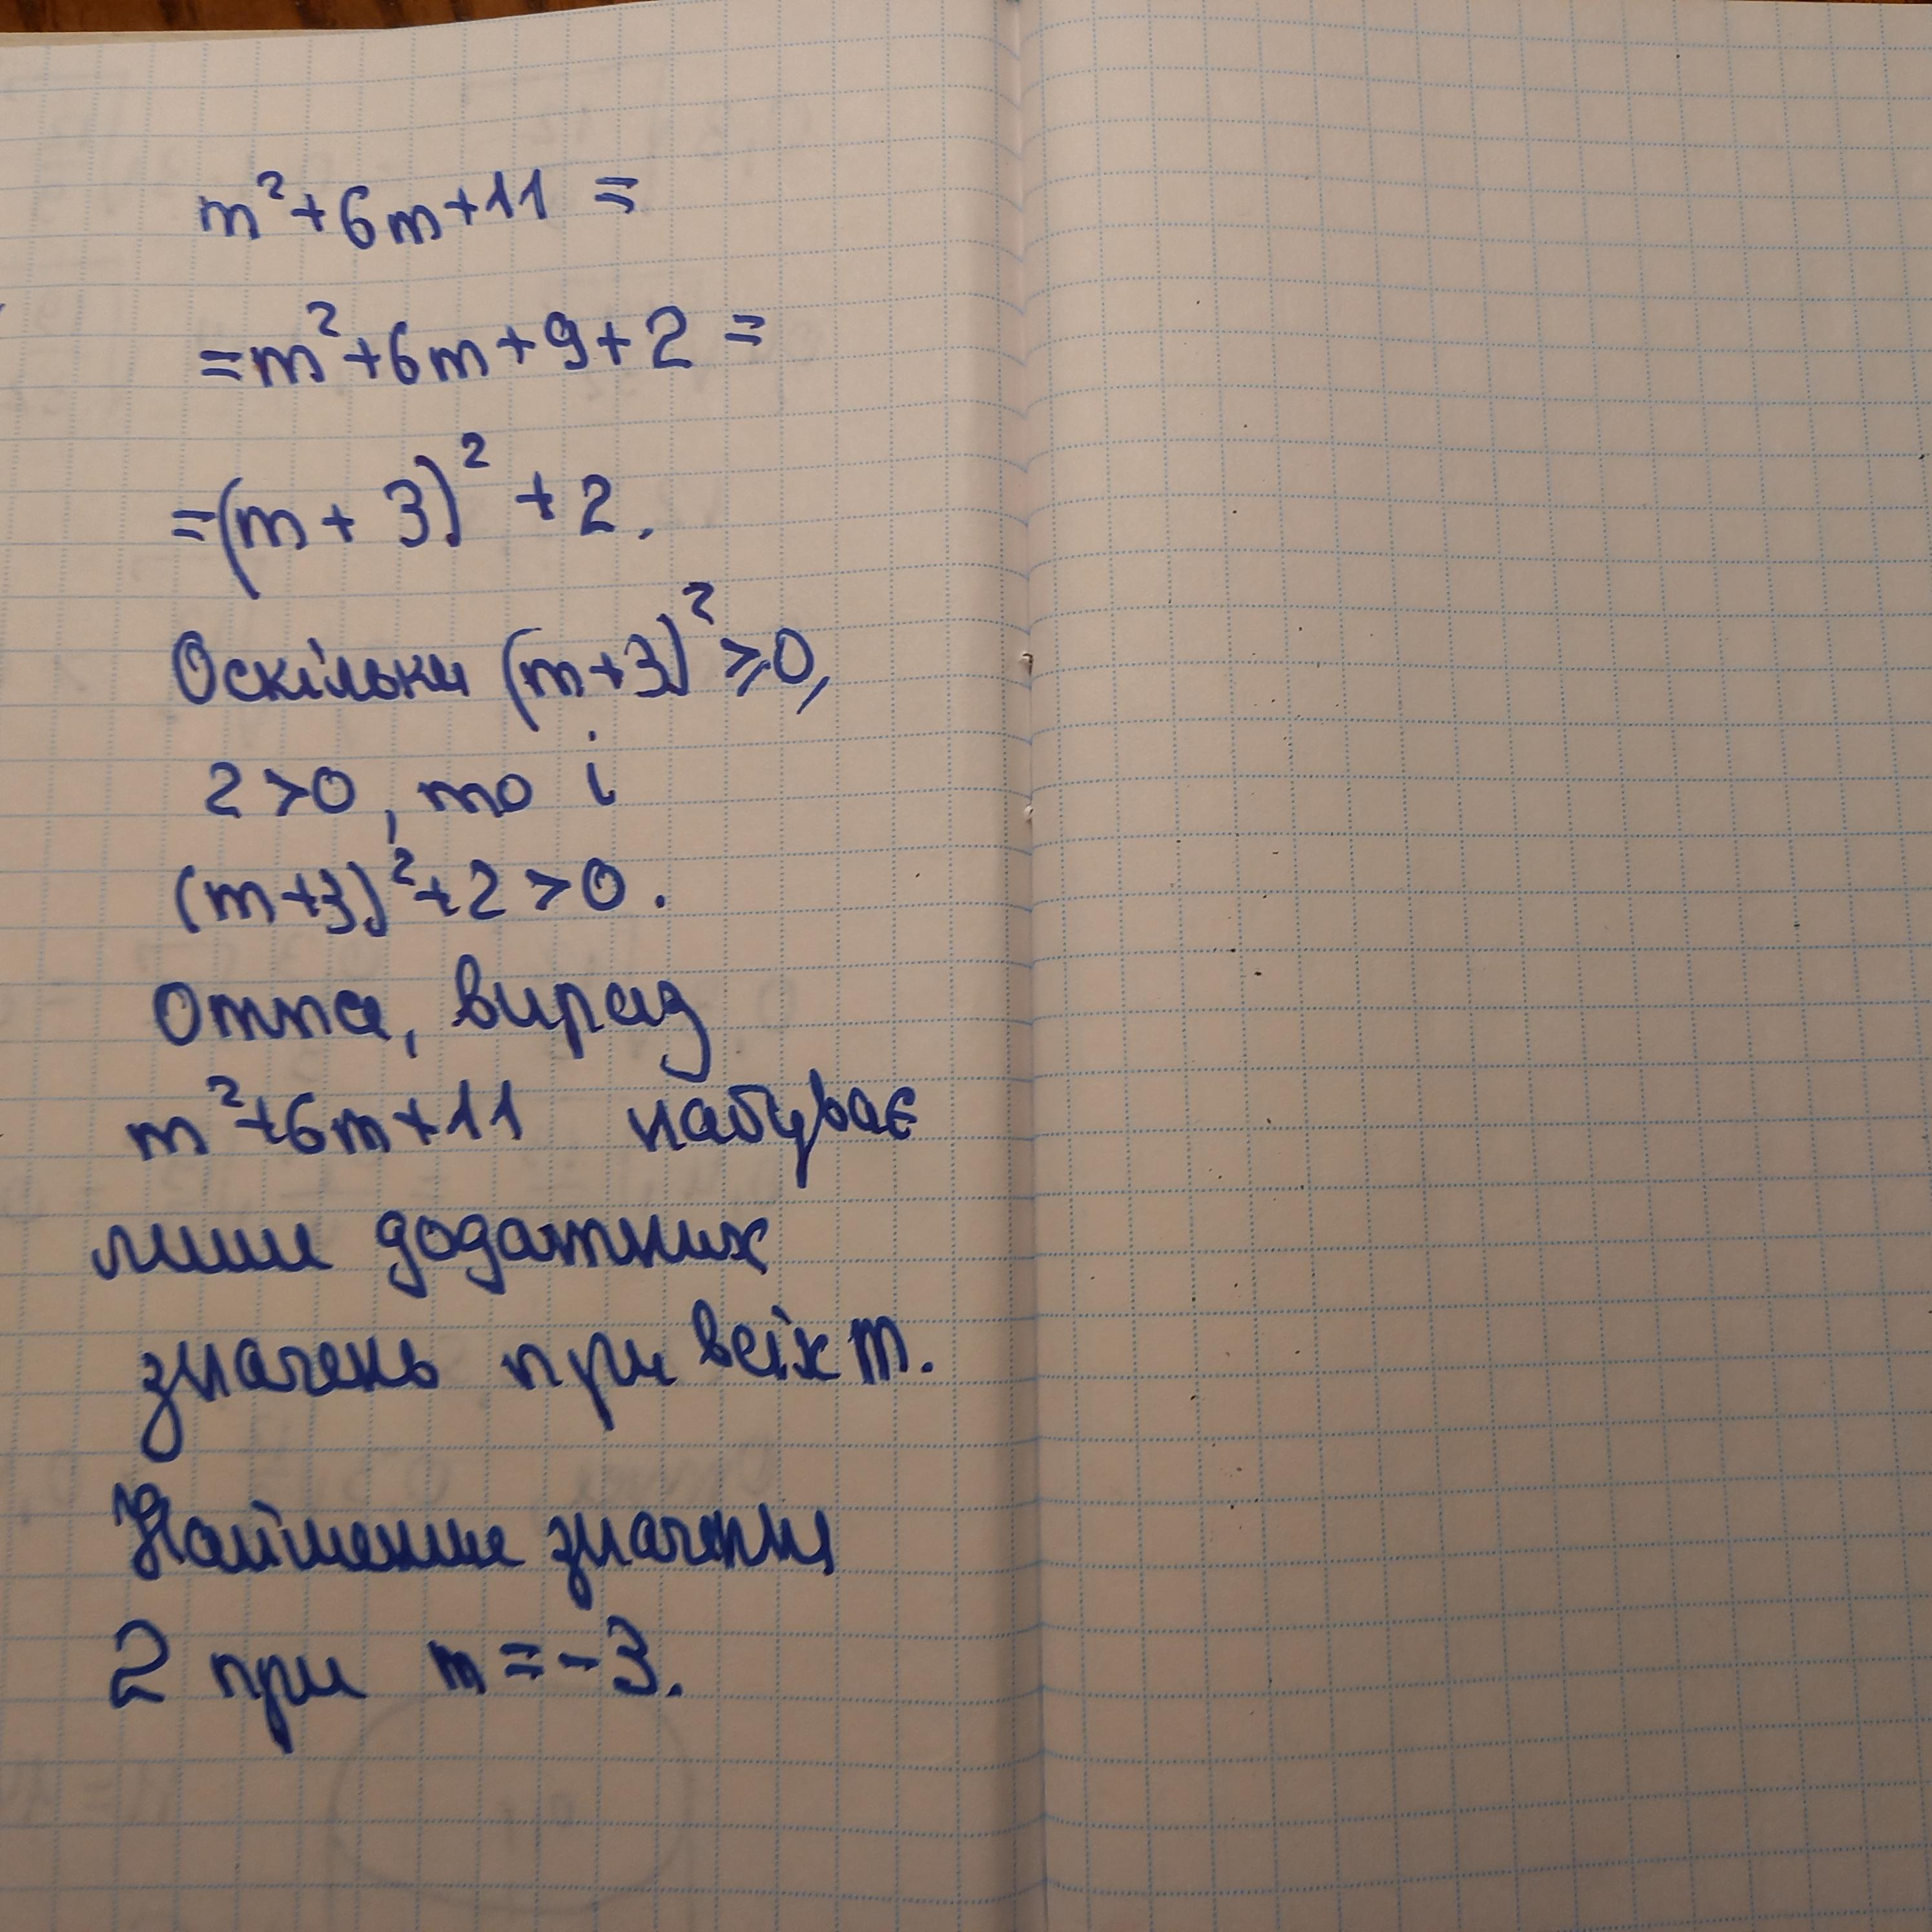 m²+6m+11 =
=m²+6m+9+2 =
=(m+3)²+2.
Оскільки (m+3)²⩾0,
2>0, то і
(m+3)²+2>0.
Отпа, вираз
m²+6m+11 набуває
лише додатних
значень при всіх m.
Найменше значення
2 при m=-3.